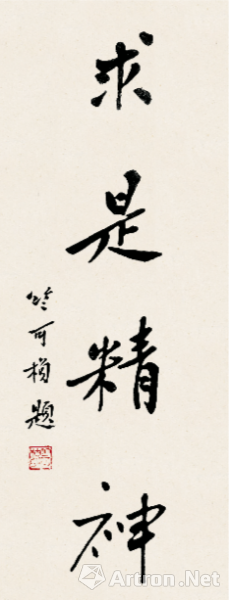 求是精神
竺可桢题
Artron.Net